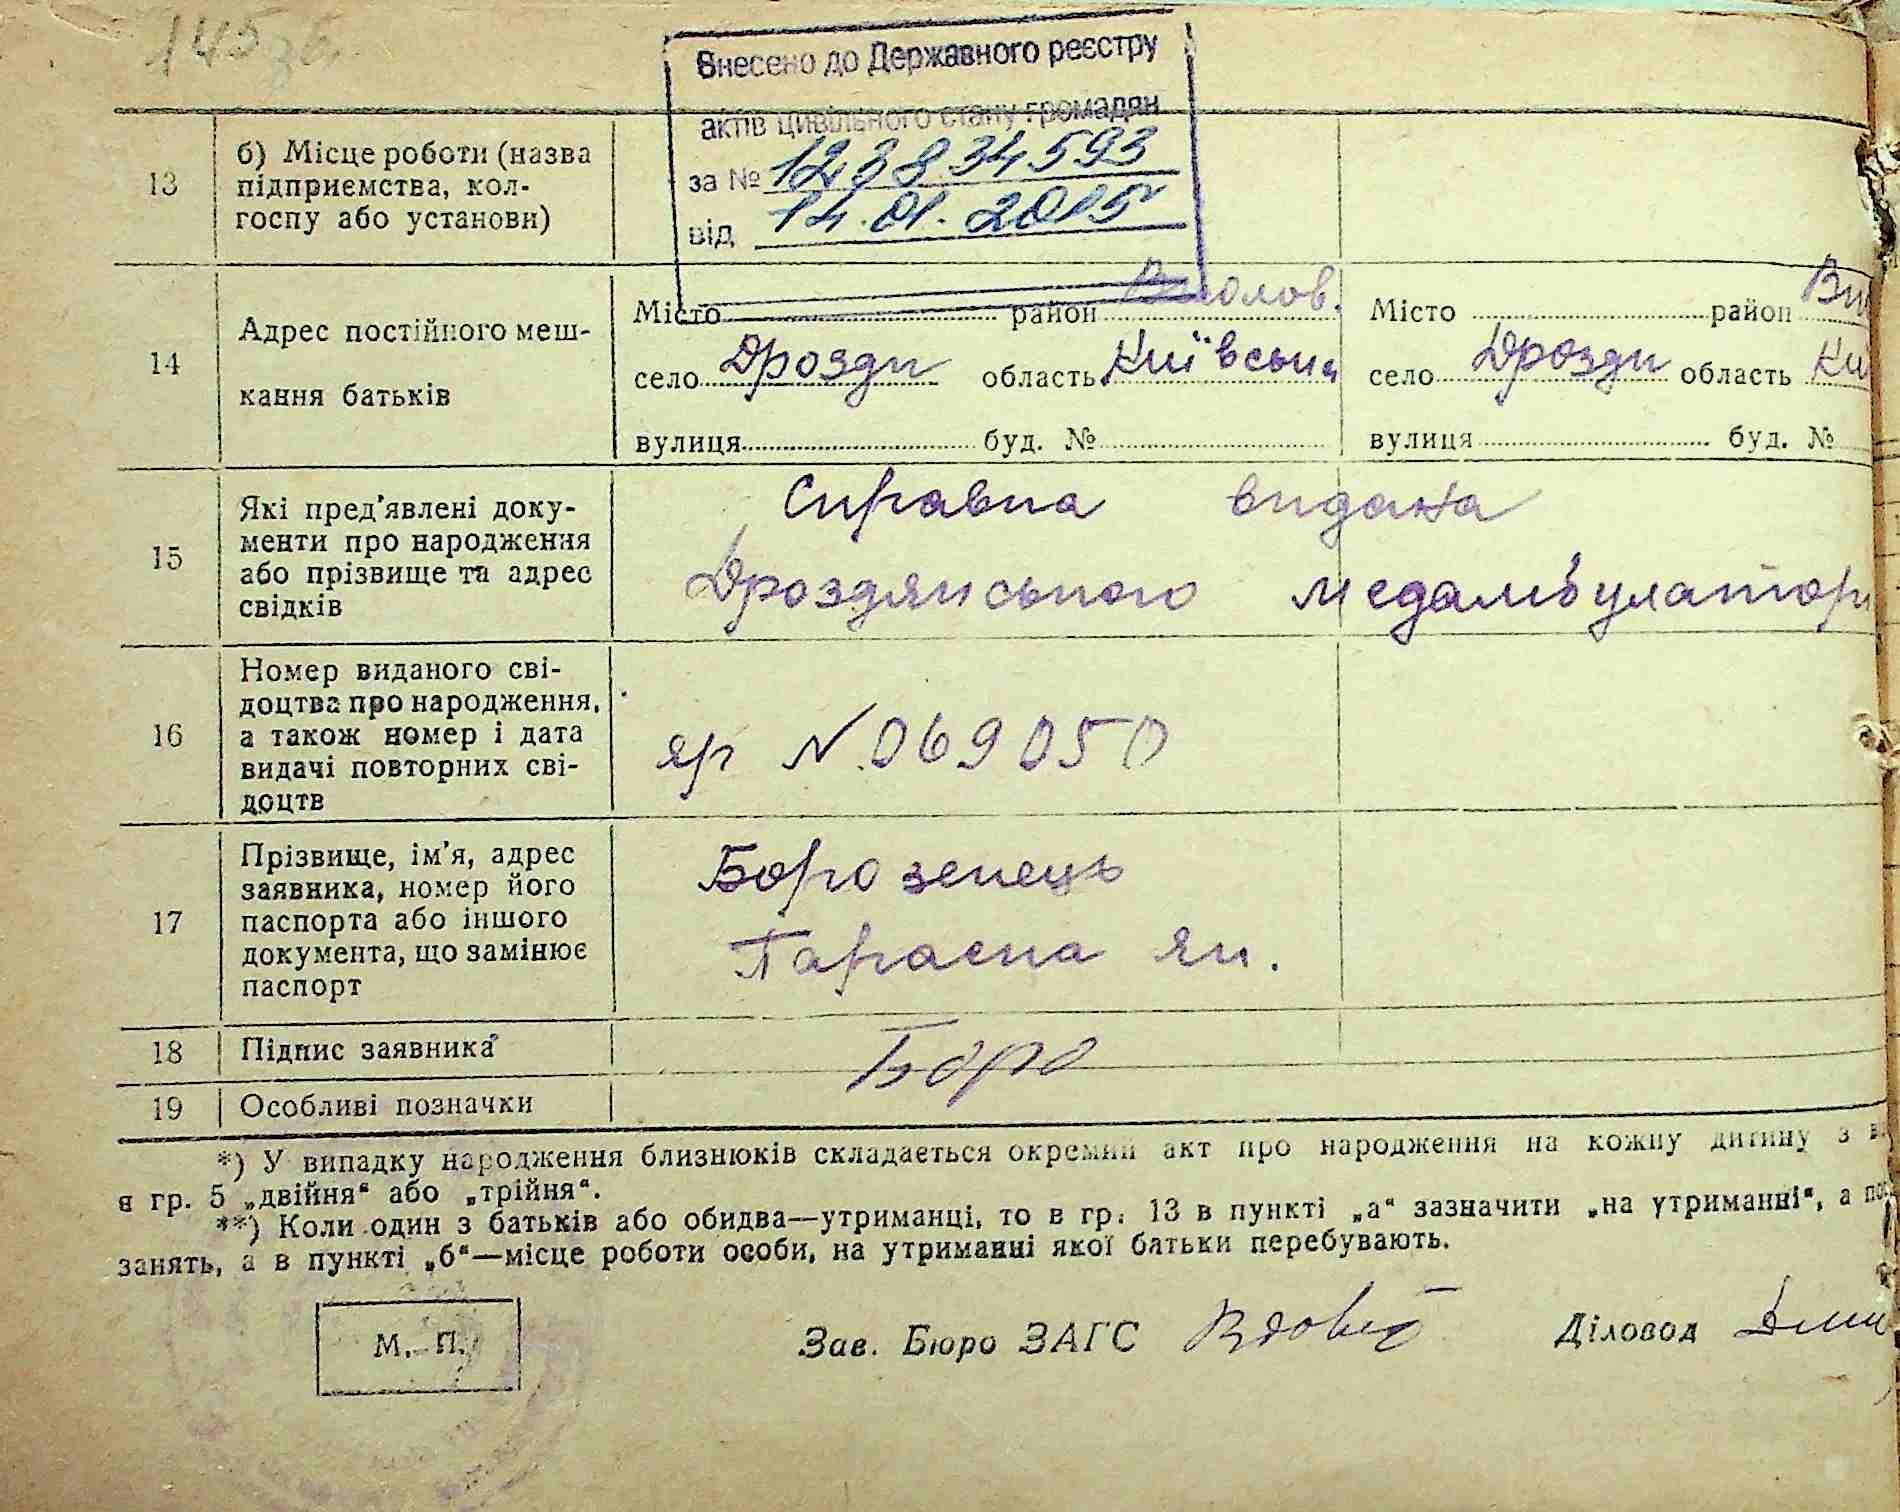 145 зв.
Внесено до Державного реєстру
актів цивільного стану громадян
за № 123834593
від 14.01.2015
13
б) Місце роботи (назва
підприємства, кол-
госпу або установи)
14
Адрес постійного меш-
кання батьків
Місто район
село Дрозди область Київська
вулиця буд. №
Місто район
село Дрозди область Ки
вулиця буд. №
15
Які пред'явлені доку-
менти про народження
або прізвище та адрес
свідків
Справка видана
Дроздянського медамбулатор
16
Номер виданого сві-
доцтва про народження,
а також номер і дата
видачі повторних сві-
доцтв
яр N 069050
17
Прізвище, ім'я, адрес
заявника, номер його
паспорта або іншого
документа, що замінює
паспорт
Борозенець
Параска Як.
18
Підпис заявника
Боро
19
Особливі позначки
*) У випадку народження близнюків складається окремий акт про народження на кожну дитину з
в гр. 5 „двійня“ або „трійня“.
**) Коли один з батьків або обидва—утриманці, то в гр. 13 в пункті „а“ зазначити „на утриманні“, а по
занять, а в пункті „б“—місце роботи особи, на утриманні якої батьки перебувають.
М. П.
Зав. Бюро ЗАГС
Діловод